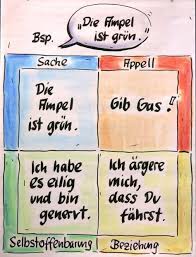 Bsp.
„Die Ampel
ist grün."
Sache
Appell
Die
Ampel
ist grün.
Gib Gas!
Ich habe
es eilig
und bin
genervt.
Ich ärgere
mich,
dass Du
fährst.
Selbstoffenbarung
Beziehung